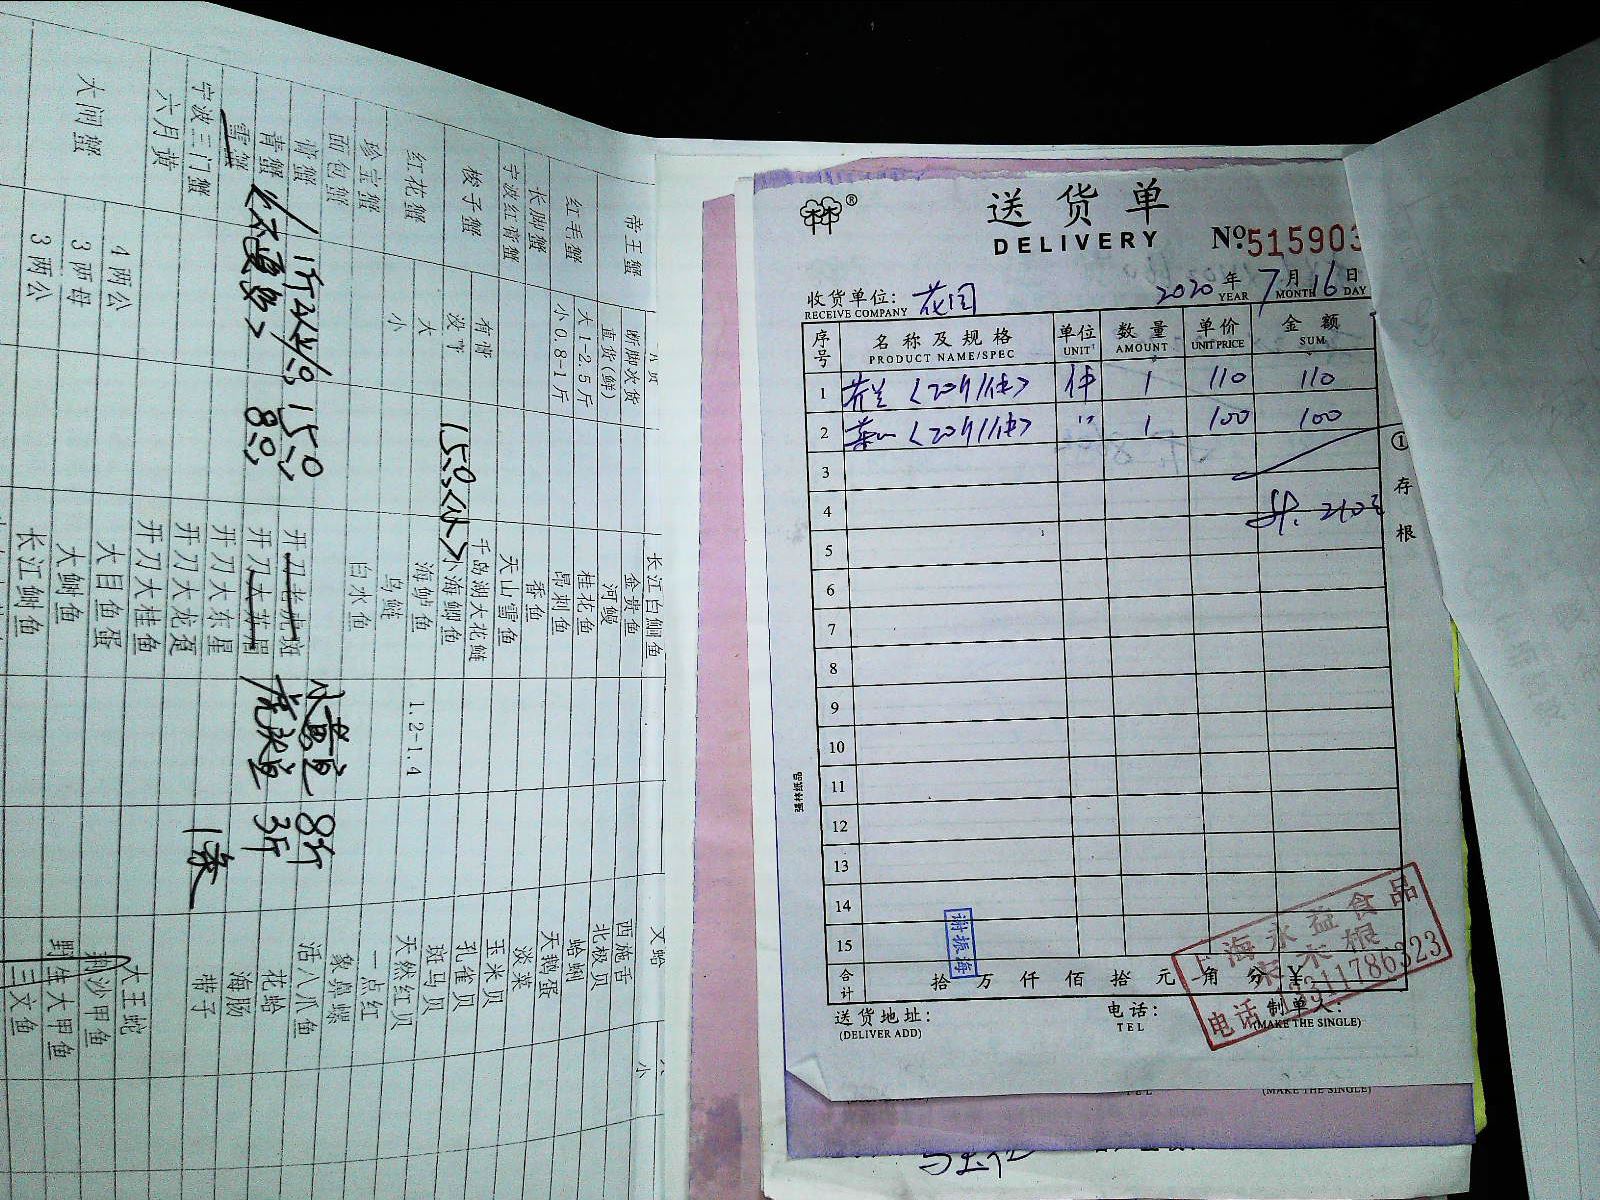 送货单
DELIVERY
№515903
收货单位: 花园
RECEIVE COMPANY
2020年7月16日
YEAR MONTH DAY
序号 名称及规格 单位 数量 单价 金额
PRODUCT NAME/SPEC UNIT AMOUNT UNIT PRICE SUM
1 芥兰〈20斤/件〉 件 1 110 110
2 菜心〈20斤/件〉 " 1 100 100
3
4 210元
5
6
7
8
9
10
11
12
13
14
15
合计 拾 万 仟 佰 拾 元 角 分 ¥
送货地址: 电话: 制单人:
(DELIVER ADD) TEL (MAKE THE SINGLE)
①存根
强林纸品
谢振海
上海永益食品
宋木根
电话
(MAKE THE SINGLE)
帝王蟹 断脚次货
直货(鲜)
红毛蟹 大1-2.5斤
小0.8-1斤
长脚蟹
宁波红膏蟹
梭子蟹 有膏
没膏
红花蟹 大
小
珍宝蟹
面包蟹
膏蟹
青蟹
雪蟹
宁波三门蟹
六月黄
大闸蟹 4两公
3两母
3两公
150
80
长江白鮰鱼
金贵鱼
河鳗
桂花鱼
昂刺鱼
香鱼
天山雪鱼
千岛湖大花鲢
小海鲫鱼
海鲈鱼 1.2-1.4
乌鲢
白水鱼
开刀老虎斑
开刀大苏眉
开刀大东星
开刀大龙趸
开刀大桂鱼
大目鱼蛋
大鮰鱼
长江鮰鱼
小黄鱼 8斤
3斤
1条
文蛤
西施舌
北极贝
蛤蜊
天鹅蛋
淡菜
玉米贝
孔雀贝
斑马贝
天然红贝
一点红
象鼻螺
活八爪鱼
花蛤
海肠
带子
大王蛇
荆沙甲鱼
野生大甲鱼
三文鱼
小